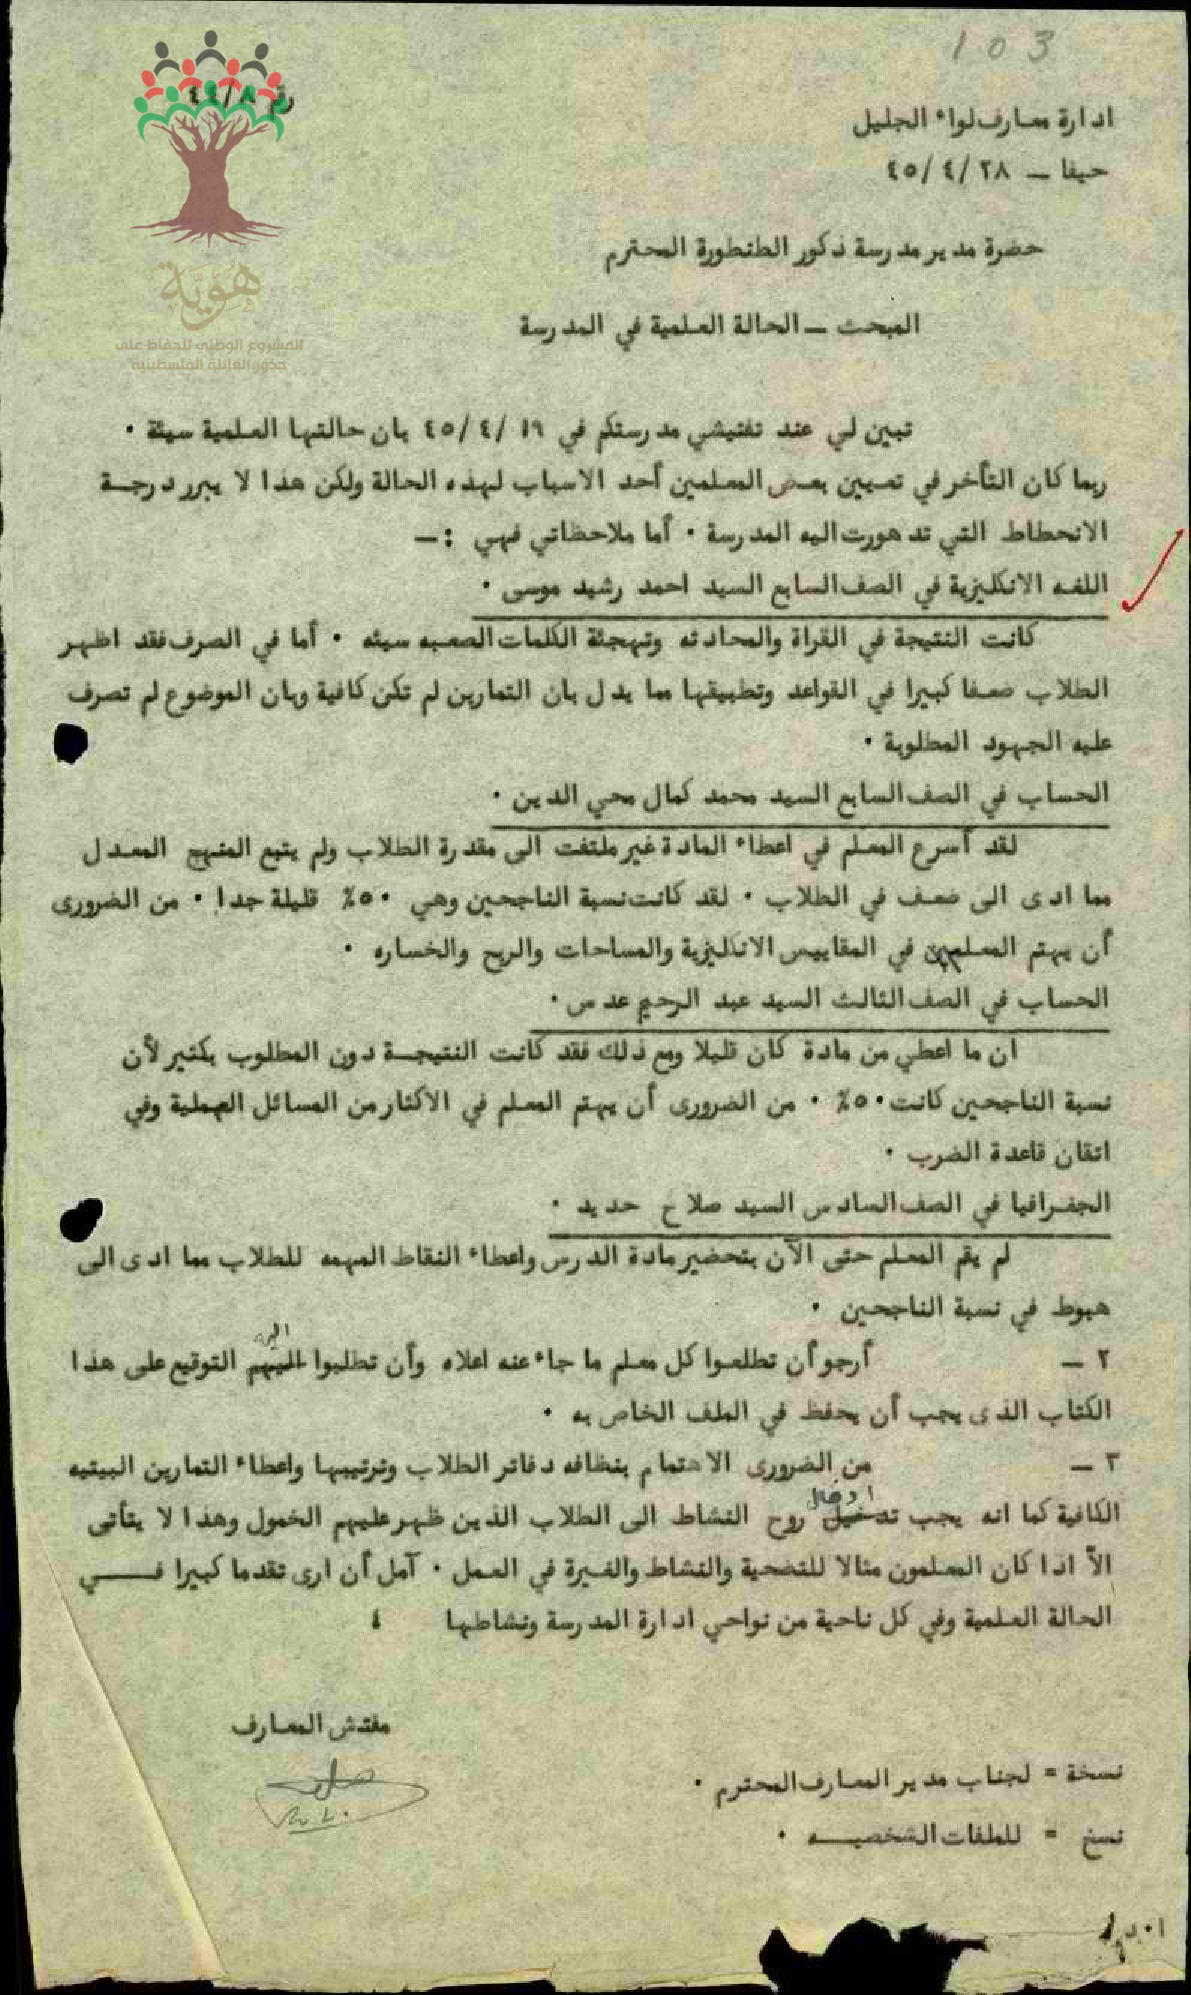 103
رقم ٤٤/٨
ادارة معارف لواء الجليل
حيفا ــ ٢٨ /٤ /٤٥
هَوِيَّة
المشروع الوطني للحفاظ على
جذور العائلة الفلسطينية
حضرة مدير مدرسة ذكور الطنطورة المحترم
المبحث ــ الحالة العلمية في المدرسة
تبين لي عند تفتيشي مدرستكم في ١٩ /٤ /٤٥ بان حالتها العلمية سيئة ٠
ربما كان التأخر في تعيين بعض المعلمين أحد الاسباب لهذه الحالة ولكن هذا لا يبرر درجة
الانحطاط التي تدهورت اليه المدرسة ٠ أما ملاحظاتي فهي :ــ
اللغه الانكليزية في الصف السابع السيد احمد رشيد موسى ٠
كانت النتيجة في القراة والمحادثه وتهجئة الكلمات الصعبه سيئه ٠ أما في الصرف فقد اظهر
الطلاب ضعفا كبيرا في القواعد وتطبيقها مما يدل بان التمارين لم تكن كافية وبان الموضوع لم تصرف
عليه الجهود المطلوبة ٠
الحساب في الصف السابع السيد محمد كمال محي الدين ٠
لقد أسرع المعلم في اعطاء المادة غير ملتفت الى مقدرة الطلاب ولم يتبع المنهج المعدل
مما ادى الى ضعف في الطلاب ٠ لقد كانت نسبة الناجحين وهي ٥٠٪ قليلة جدا ٠ من الضرورى
أن يهتم المعلمين في المقاييس الانكليزية والمساحات والربح والخساره ٠
الحساب في الصف الثالث السيد عبد الرحيم عدس ٠
ان ما اعطي من مادة كان قليلا ومع ذلك فقد كانت النتيجة دون المطلوب بكثير لأن
نسبة الناجحين كانت ٥٠٪ ٠ من الضرورى أن يهتم المعلم في الاكثار من المسائل العملية وفي
اتقان قاعدة الضرب ٠
الجغرافيا في الصف السادس السيد صلاح حديد ٠
لم يقم المعلم حتى الآن بتحضير مادة الدرس واعطاء النقاط المهمه للطلاب مما ادى الى
هبوط في نسبة الناجحين ٠
٢ ــ أرجو أن تطلعوا كل معلم ما جاء عنه اعلاه وأن تطلبوا اليه التوقيع على هذا
الكتاب الذى يجب أن يحفظ في الملف الخاص به ٠
٣ ــ من الضرورى الاهتمام بنظافه دفاتر الطلاب وترتيبها واعطاء التمارين البيتيه
الكافية كما انه يجب ادخال روح النشاط الى الطلاب الذين ظهر عليهم الخمول وهذا لا يتأتى
الاّ اذا كان المعلمون مثالا للتضحية والنشاط والغيرة في العمل ٠ آمل أن ارى تقدما كبيرا فــــي
الحالة العلمية وفي كل ناحية من نواحي ادارة المدرسة ونشاطها
مفتش المعارف
نسخة = لجناب مدير المعارف المحترم ٠
نسخ = للملفات الشخصيـــه ٠